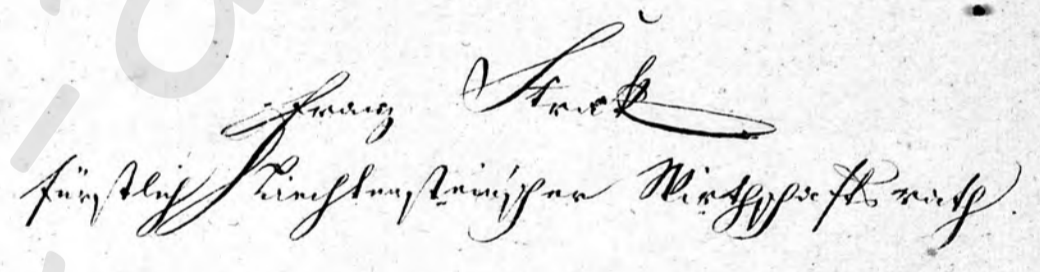 Franz Strak
fürstlich Liechtensteinischer Wirthschaftsrath.